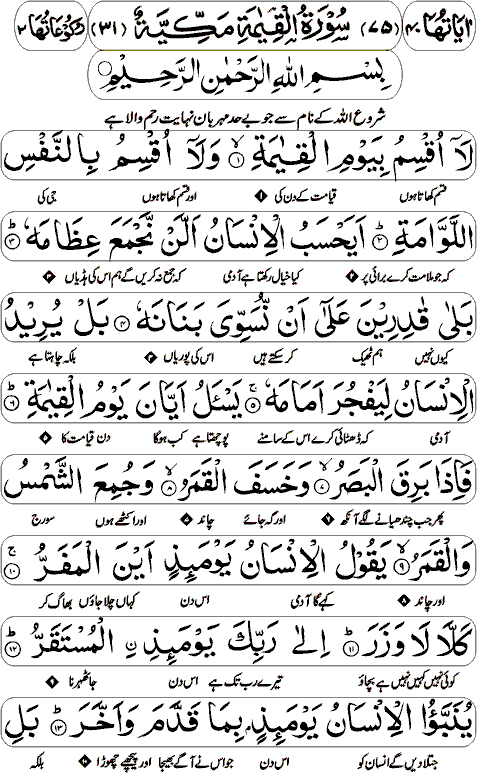 اٰیَاتُهَا ۴۰ (۷۵) سُوْرَةُ الْقِیٰمَةِ مَكِّیَّةٌ (۳۱) رُكُوْعَاتُهَا ۲
بِسْمِ اللهِ الرَّحْمٰنِ الرَّحِیْمِ
شروع اللہ کے نام سے جو بے حد مہربان نہایت رحم والا ہے
لَاۤ اُقْسِمُ بِیَوْمِ الْقِیٰمَةِ ۱ وَلَاۤ اُقْسِمُ بِالنَّفْسِ
قسم کھاتا ہوں قیامت کے دن کی اور قسم کھاتا ہوں جی کی
اللَّوَّامَةِ ۲ اَیَحْسَبُ الْاِنْسَانُ اَلَّنْ نَّجْمَعَ عِظَامَهٗ ۳
کہ جو ملامت کرے برائی پر کیا خیال رکھتا ہے آدمی کہ جمع نہ کریں گے ہم اس کی ہڈیاں
بَلٰى قٰدِرِیْنَ عَلٰۤى اَنْ نُّسَوِّیَ بَنَانَهٗ ۴ بَلْ یُرِیْدُ
کیوں نہیں ہم ٹھیک کر سکتے ہیں اس کی پوریاں بلکہ چاہتا ہے
الْاِنْسَانُ لِیَفْجُرَ اَمَامَهٗ ۵ یَسْـَٔلُ اَیَّانَ یَوْمُ الْقِیٰمَةِ ۶
آدمی کہ ڈھٹائی کرے اس کے سامنے پوچھتا ہے کب ہوگا دن قیامت کا
فَاِذَا بَرِقَ الْبَصَرُ ۷ وَخَسَفَ الْقَمَرُ ۸ وَجُمِعَ الشَّمْسُ
پھر جب چندھیانے لگے آنکھ اور گہ جائے چاند اور اکٹھے ہوں سورج
وَالْقَمَرُ ۹ یَقُوْلُ الْاِنْسَانُ یَوْمَىِٕذٍ اَیْنَ الْمَفَرُّ ۱۰
اور چاند کہے گا آدمی اس دن کہاں چلا جاؤں بھاگ کر
كَلَّا لَا وَزَرَ ۱۱ اِلٰى رَبِّكَ یَوْمَىِٕذِ ِ۟الْمُسْتَقَرُّ ۱۲
کوئی نہیں کہیں نہیں ہے بچاؤ تیرے رب تک ہے اس دن جا ٹھہرنا
یُنَبَّؤُا الْاِنْسَانُ یَوْمَىِٕذٍۭ بِمَا قَدَّمَ وَاَخَّرَ ۱۳ بَلِ
جتلا دیں گے انسان کو اس دن جو اس نے آگے بھیجا اور پیچھے چھوڑا بلکہ